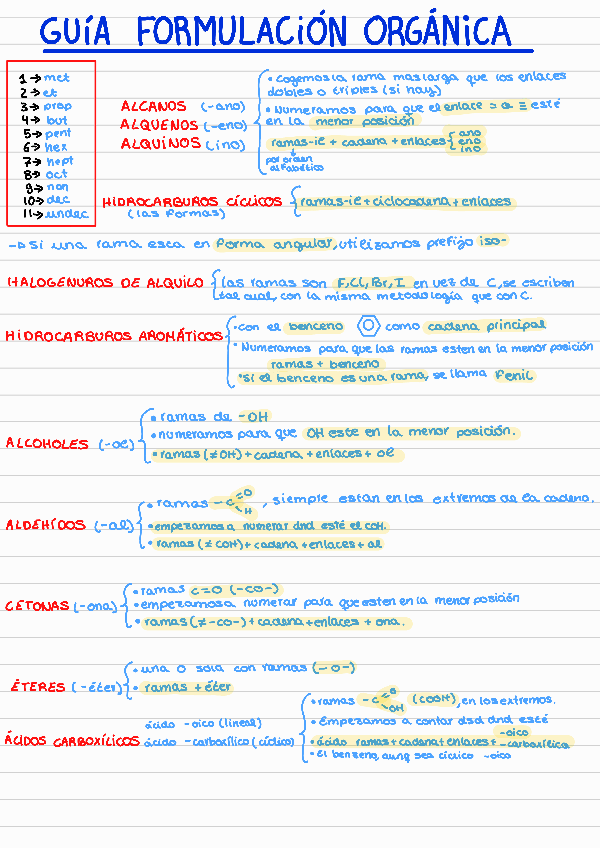 GUÍA FORMULACIÓN ORGÁNICA
1→ met
2→ et
3→ prop
4→ but
5→ pent
6→ hex
7→ hept
8→ oct
9→ non
10→ dec
11→ undec
ALCANOS (-ano)
ALQUENOS (-eno)
ALQUINOS (ino)
• Cogemos la rama mas larga que los enlaces
dobles o triples (si hay)
• Numeramos para que el enlace = o ≡ esté
en la menor posición
ramas-il + cadena + enlaces { ano
eno
ino
por orden
alfabético
HIDROCARBUROS CÍCLICOS { ramas-il + ciclocadena + enlaces
(las formas)
→ Si una rama esta en forma angular, utilizamos prefijo iso-
HALOGENUROS DE ALQUILO { las ramas son F, Cl, Br, I en vez de C, se escriben
tal cual, con la misma metodología que con C.
HIDROCARBUROS AROMÁTICOS
• con el benceno como cadena principal
• Numeramos para que las ramas esten en la menor posición
ramas + benceno
• si el benceno es una rama, se llama fenil
ALCOHOLES (-ol)
• ramas de -OH
• numeramos para que OH este en la menor posición.
• ramas (≠OH) + cadena + enlaces + ol
ALDEHÍDOS (-al)
• ramas -C=O H, siempre están en los extremos de la cadena.
• empezamos a numerar dnd esté el COH.
• ramas (≠ COH) + cadena + enlaces + al
CETONAS (-ona)
• ramas C=O (-CO-)
• empezamos a numerar para que esten en la menor posición
• ramas (≠ -CO-) + cadena + enlaces + ona.
ÉTERES (-éter)
• una O sola con ramas (-O-)
• ramas + éter
ÁCIDOS CARBOXÍLICOS
ácido -oico (lineal)
ácido -carboxílico (cíclico)
• ramas -C=O OH (COOH), en los extremos.
• Empezamos a contar dsd dnd esté
• ácido ramas + cadena + enlaces + -oico
-carboxílico
• El benzeno, aunq sea cíclico -oico